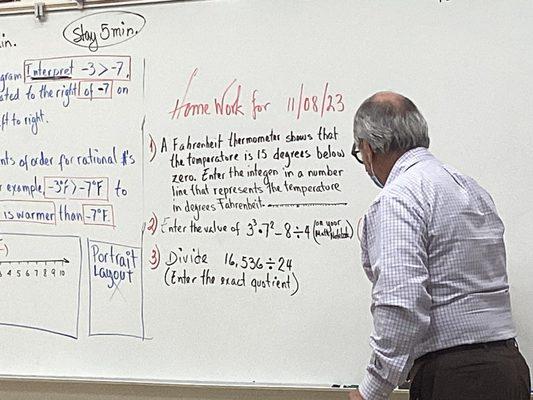 Stay 5 min.
in.
gram Interpret -3 > -7.
ted to the right of -7 on
ft to right.
nts of order for rational #'s
r example, -3°F > -7°F to
is warmer than -7°F.
3 4 5 6 7 8 9 10
Portrait
Layout
Home Work for 11/08/23
1) A Fahrenheit thermometer shows that
the temperature is 15 degrees below
zero. Enter the integer in a number
line that represents the temperature
in degrees Fahrenheit.
2) Enter the value of 3³·7²-8÷4 (on your
3) Divide 16,536÷24
(Enter the exact quotient)